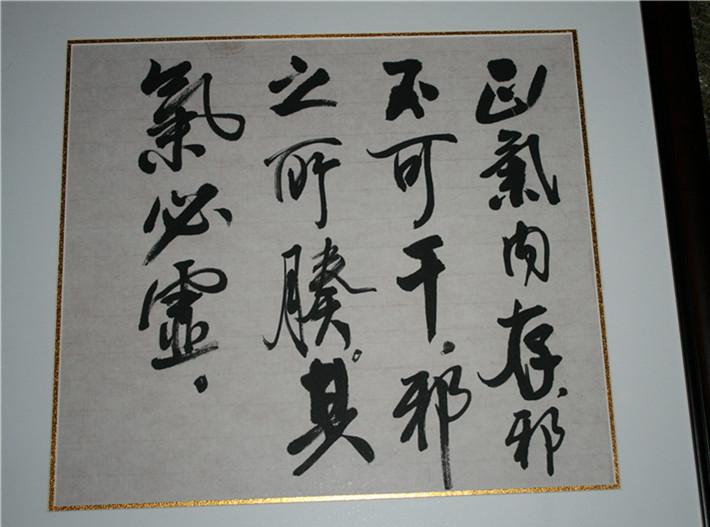 正氣内存、邪
不可干、邪
之所腠。其
氣必虛。